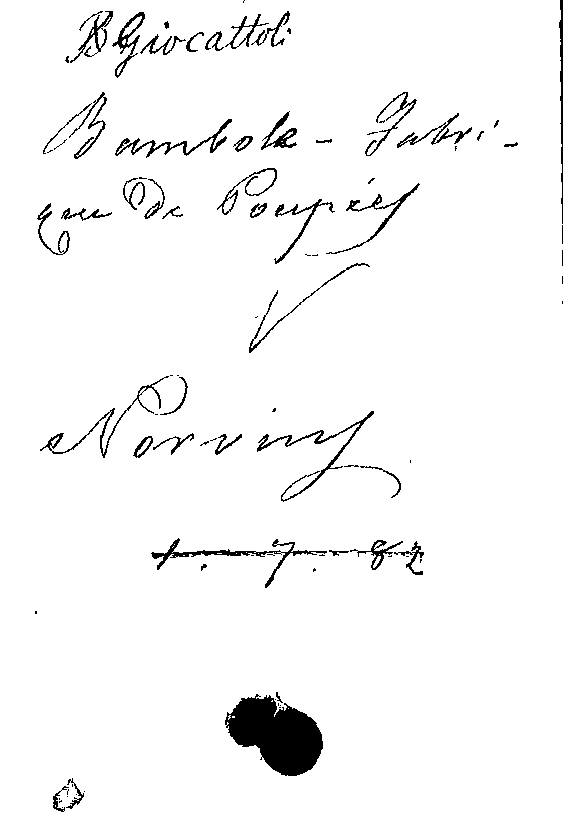 B Giocattoli
Bambole - Fabri-
que de Poupées
V
Norvins
1. 7. 82